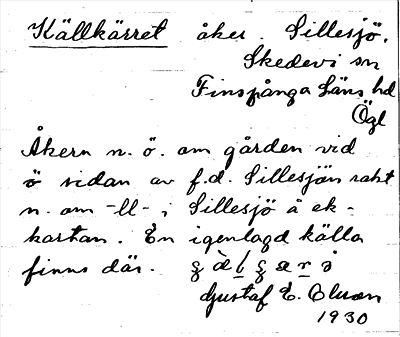 Källkärret åker. Sillesjö.
Skedevi sn
Finspånga Läns hd
Ögl
Åkern n. ö. om gården vid
ö sidan av f.d. Sillesjön rakt
n. om -ll- i Sillesjö å ek-
kartan. En igenlagd källa
finns där.
Gustaf E. Olsson
1930